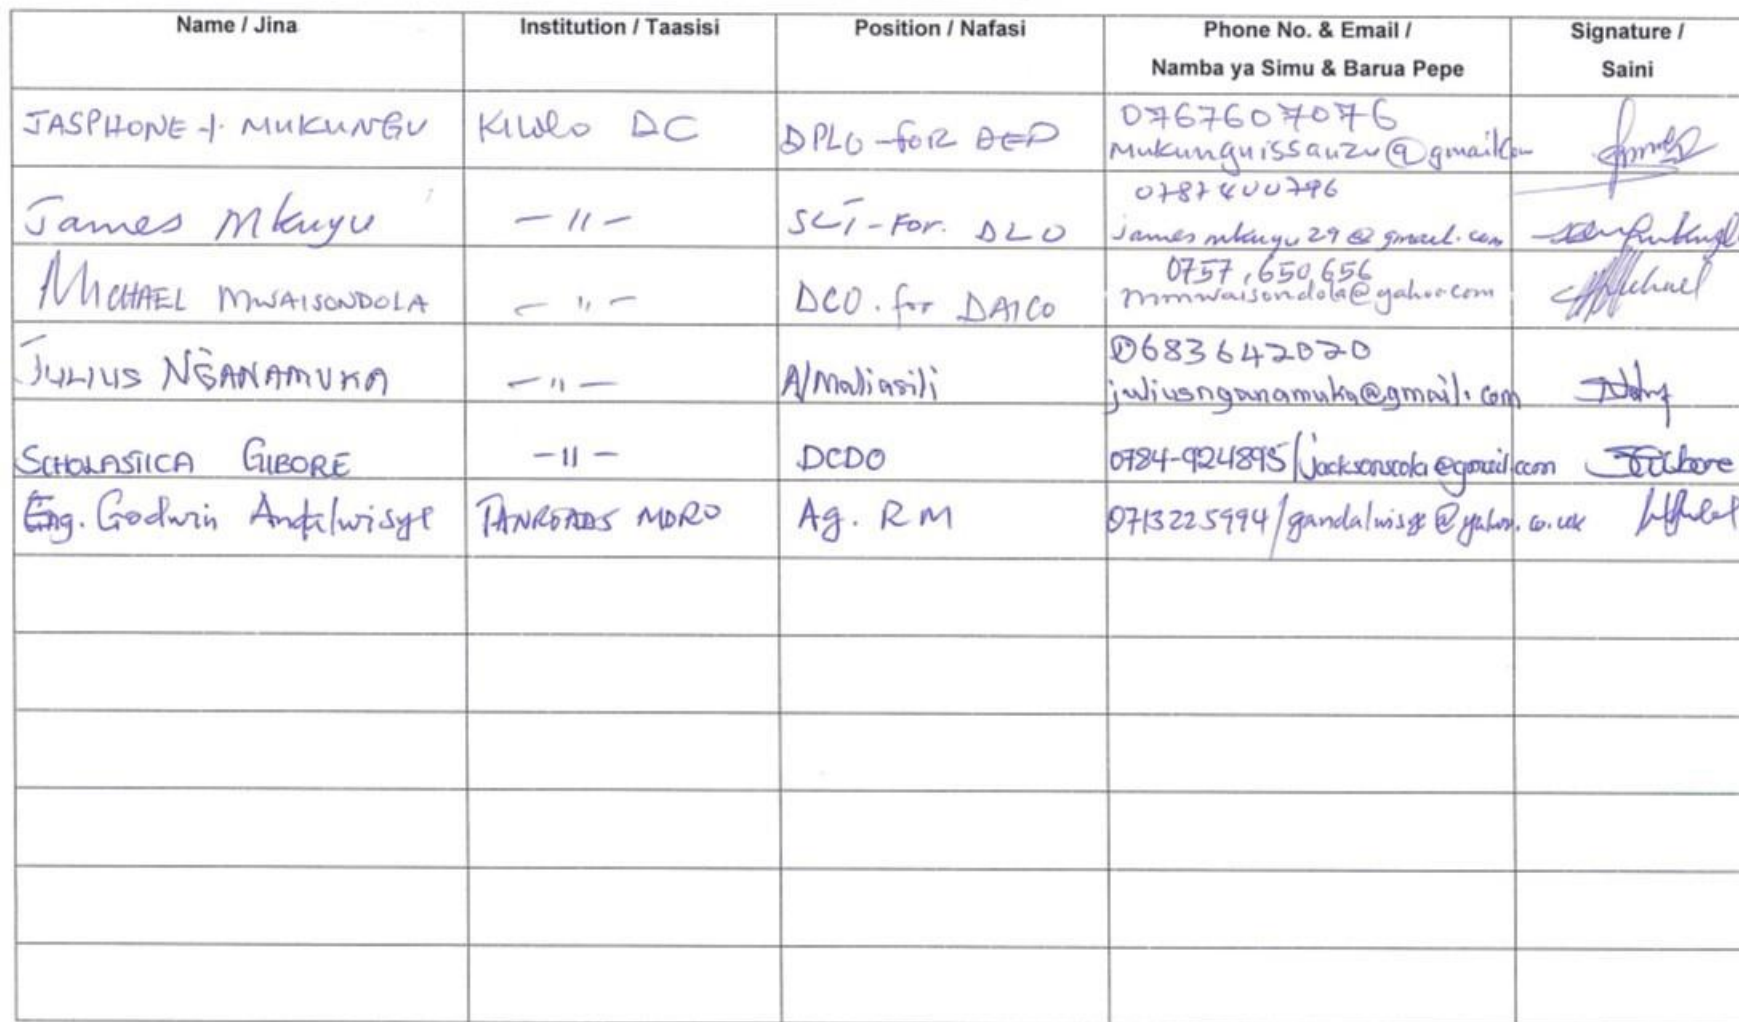 Name / Jina Institution / Taasisi Position / Nafasi Phone No. & Email / Signature /
Namba ya Simu & Barua Pepe Saini
JASPHONE I. MUKUNGU KILOLO DC DPLO - for DED 0767607076
Mukunguissauzu@gmail.com
James Mkuyu - 11 - For. DLO 0787400796
james mkuyu 29@gmail.com
MICHAEL MWAISONDOLA - 11 - DCO. for DAICO 0757,650,656
mmwaisondola@yahoo.com
JULIUS NGANAMUKA - 11 - A/Maliasili 0683642020
juliusnganamuka@gmail.com
SCHOLASTICA GIBORE - 11 - DCDO 0784-924895/jacksonscola@gmail.com
Eng. Godwin Andalwisye TANROADS MORO Ag. RM 0713225994/gandalwisye@yahoo.co.uk